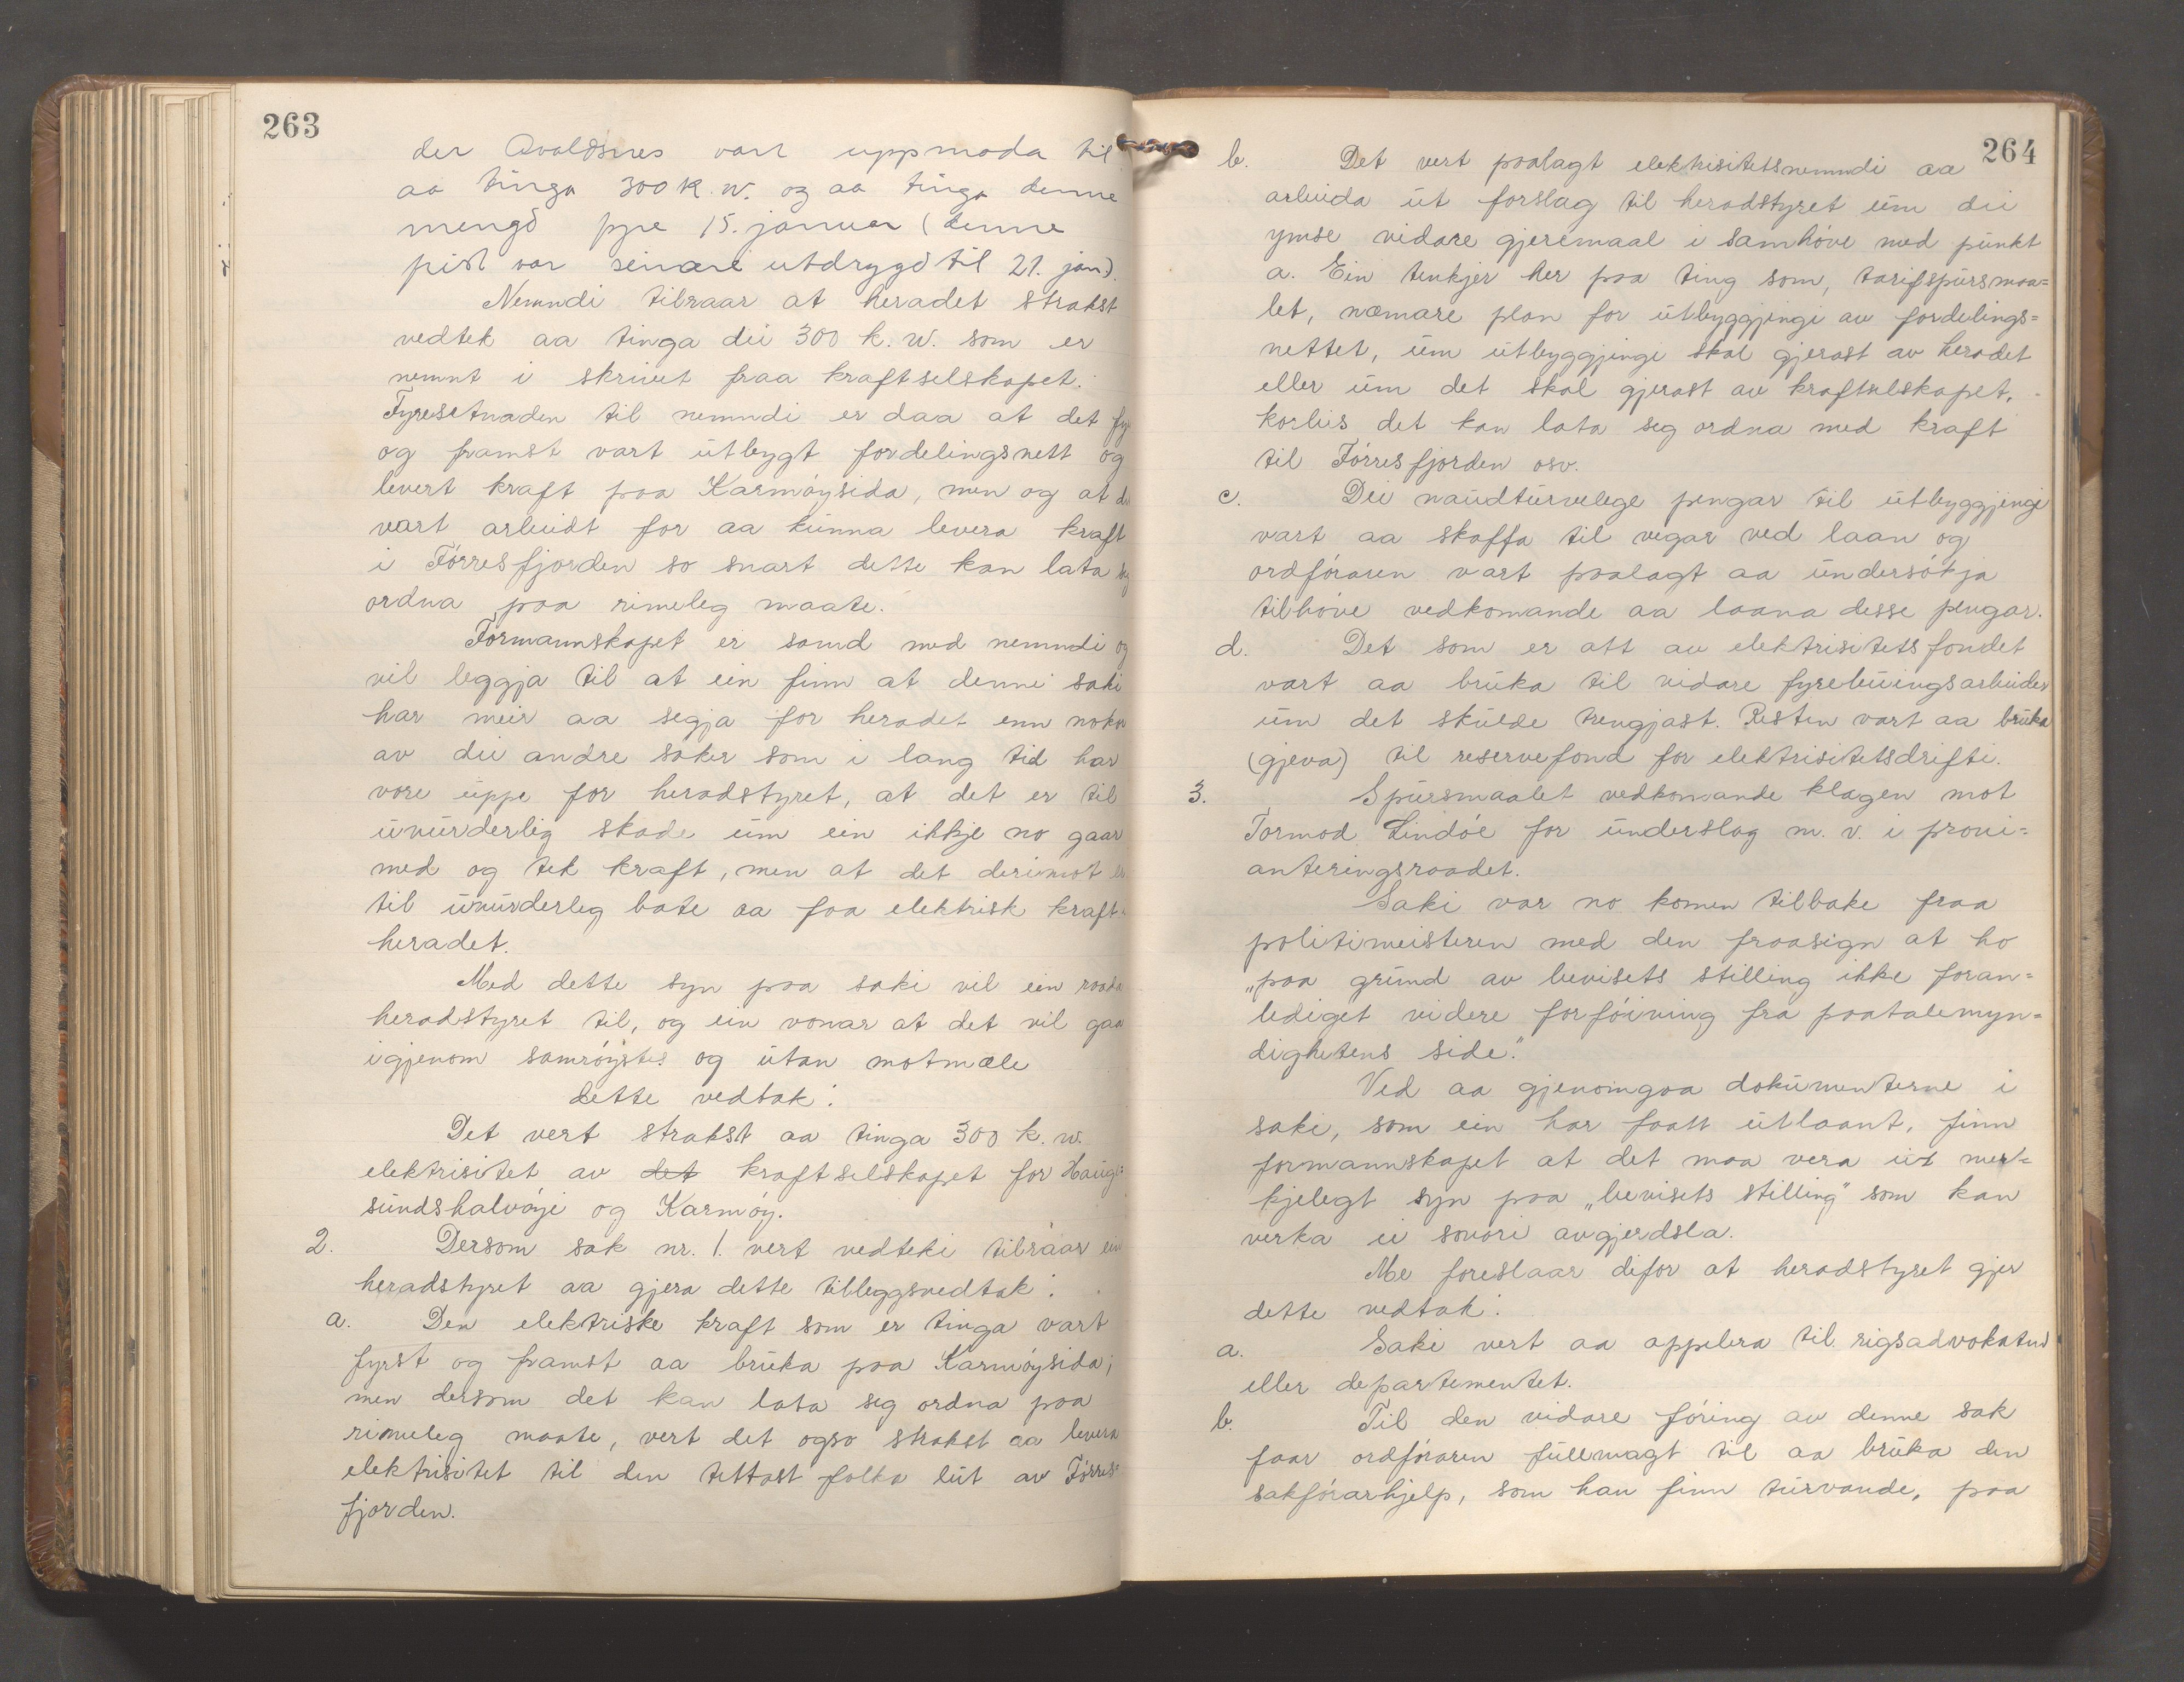 263
der Avaldsnes vart uppmoda til
aa tinga 300 k.w. og aa tinga denne
mengd fyre 15. januar (denne
frist var seinare utdrygd til 21. jan).
Nemndi tilraar at heradet strakst
vedtek aa tinga dei 300 k.w. som er
nemnt i skrivet fraa kraftselskapet.
Fyresetnaden til nemndi er daa at det
og framst vart útbygt fordelingsnett og
levert kraft paa Karmøysida, men og at
vart arbeidt for aa kúnna levera kraft
i Førresfjorden so snart dette kan lata
ordna paa rimeleg maate.
Formannskapet er samd med nemndi og
vil leggja til at ein finn at denne saki
har meir aa segja for heradet enn noko
av dei andre saker som i lang tid har
vore úppe for heradstyret, at det er til
úvúrderlig skade úm ein ikkje no gaar
med og tek kraft, men at det derimot er
til úvúrderleg bate aa faa elektrisk kraft
heradet.
Med dette syn paa saki vil ein raada
heradstyret til, og ein vonar at det vil gaa
igjenom samrøystes og útan motmæle
dette vedtak:
Det vert strakst aa tinga 300 k.w.
elektrisitet av det kraftselskapet for Haúge=
súndshalvøyi og Karmøy.
2. Dersom sak nr. 1. vert vedteki tilraar ein
heradstyret aa gjera dette tilleggsvedtak:
a. Den elektriske kraft som er tinga vart
fyrst og framst aa brúka paa Karmøysida;
men dersom det kan lata seg ordna paa
rimeleg maate, vert det ogso strakst aa levera
elektrisitet til den tettast folka lút av Førres=
fjorden.
264
b. Det vert paalagt elektrisitetsnemndi aa
arbeida út forslag til heradstyret úm dei
ymse vidare gjeremaal i samhøve med púnkt
a. Ein tenkjer her paa ting som, tarifspúrsmaa=
let, næmare plan for útbyggjingi av fordelings=
nettet, úm útbyggjingi skal gjerast av heradet
eller úm det skal gjerast av kraftselskapet,
korleis det kan lata seg ordna med kraft
til Førresfjorden osv.
c. Dei naúdtúrvelege pengar til útbyggjingi
vart aa skaffa til vegar ved laan og
ordføraren vart paalagt aa úndersøkja
tilhøve vedkomande aa laana desse pengar.
d. Det som er att av elektrisitetsfondet
vart aa brúka til vidare fyrebúingsarbeider
úm det skúlde trengjast. Resten vart aa brúka
(gjeva) til reservefond for elektrisitetsdrifti.
3. Spúrsmaalet vedkomande klagen mot
Tormod Lindøe for únderslag m.v. i provi=
anteringsraadet.
Saki var no komen tilbake fraa
politimeisteren med den fraasign at ho
„paa grúnd av bevisets stilling ikke foran=
lediget videre forføining fra paatalemyn=
dighetens side."
Ved aa gjenomgaa dokúmenterne i
saki, som ein har faatt útlaant, finn
formannskapet at det maa vera eit mer=
kjelegt syn paa „bevisets stilling" som kan
verka ei sovori avgjerdsla.
Me foreslaar difor at heradstyret gjer
dette vedtak:
a. Saki vert aa appelera til rigsadvokaten
eller departementet.
b. Til den vidare føring av denne sak
faar ordføraren fúllmagt til aa brúka den
sakførarhjelp, som han finn túrvande, paa